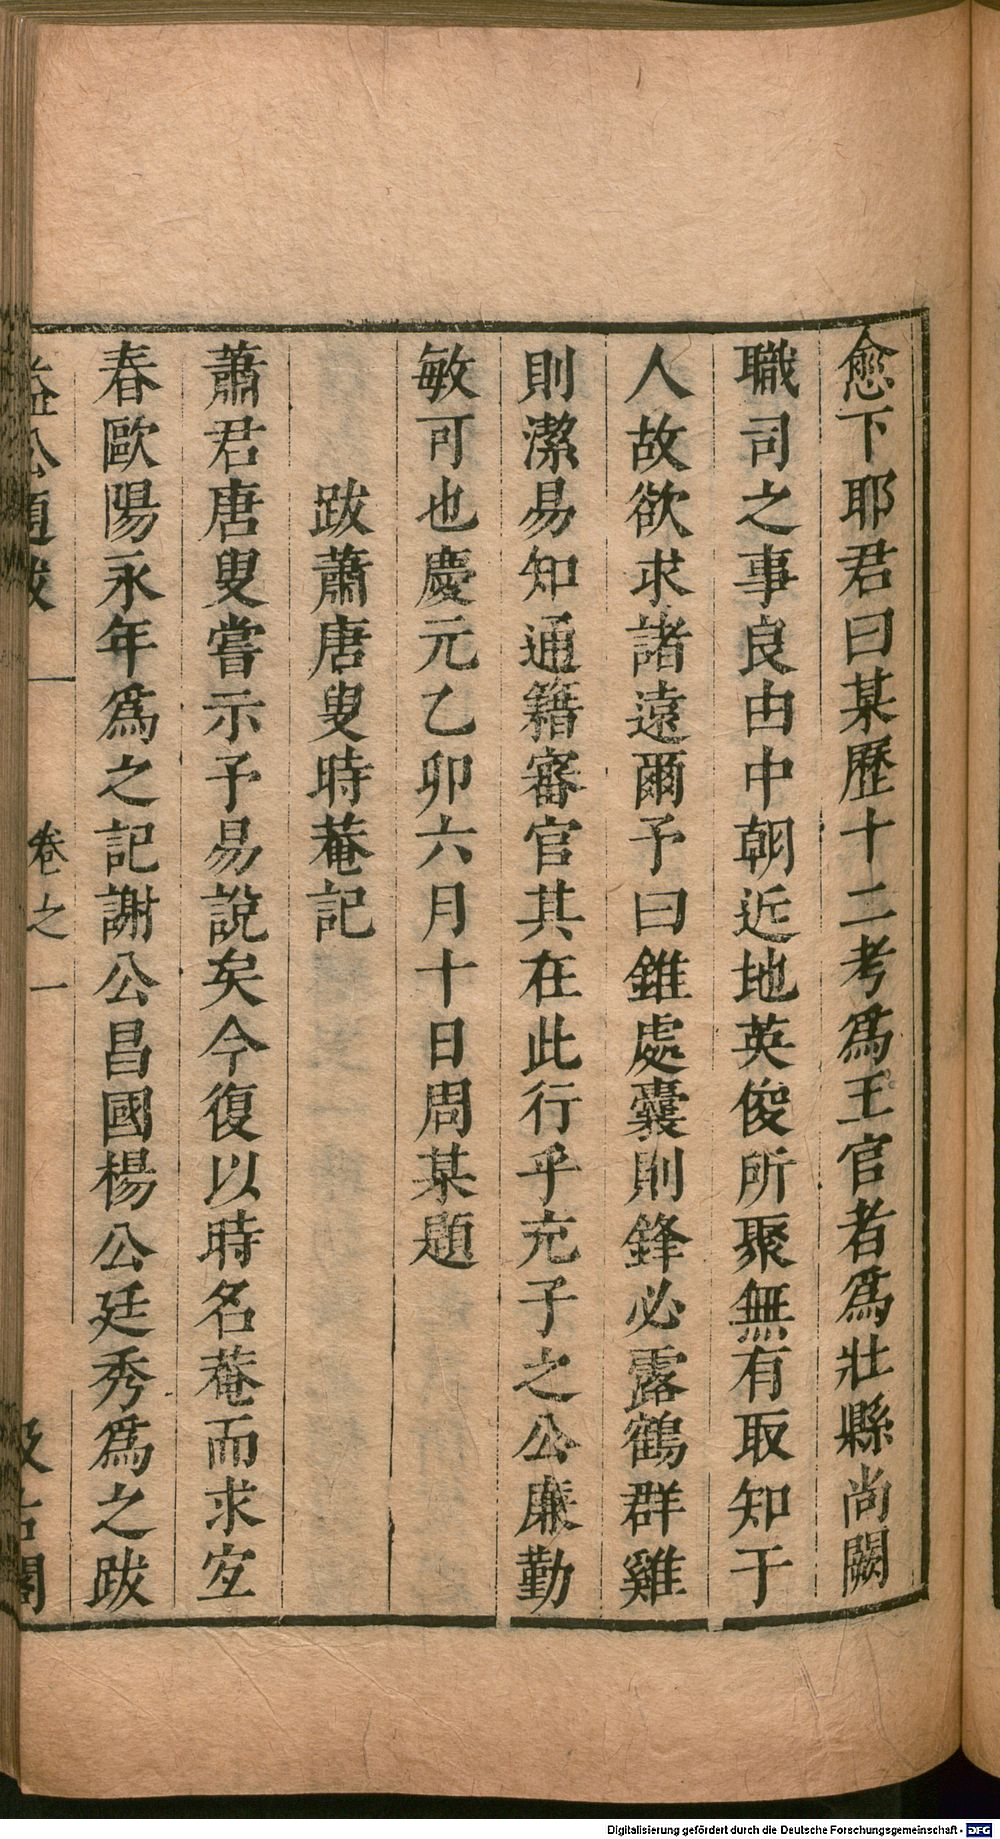 愈下耶君曰某歷十二考爲王官者爲壯縣尚闕
職司之事良由中朝近地英俊所聚無有取知于
人故欲求諸遠爾予曰錐處囊則鋒必露鶴群雞
則潔易知通籍審官其在此行乎充子之公廉勤
敏可也慶元乙卯六月十日周某題
跋蕭唐叟時菴記
蕭君唐叟嘗示予易說矣今復以時名菴而求宜
春歐陽永年爲之記謝公昌國楊公廷秀爲之跋
益公題跋
卷之一
汲古閣
Digitalisierung gefördert durch die Deutsche Forschungsgemeinschaft - DFG